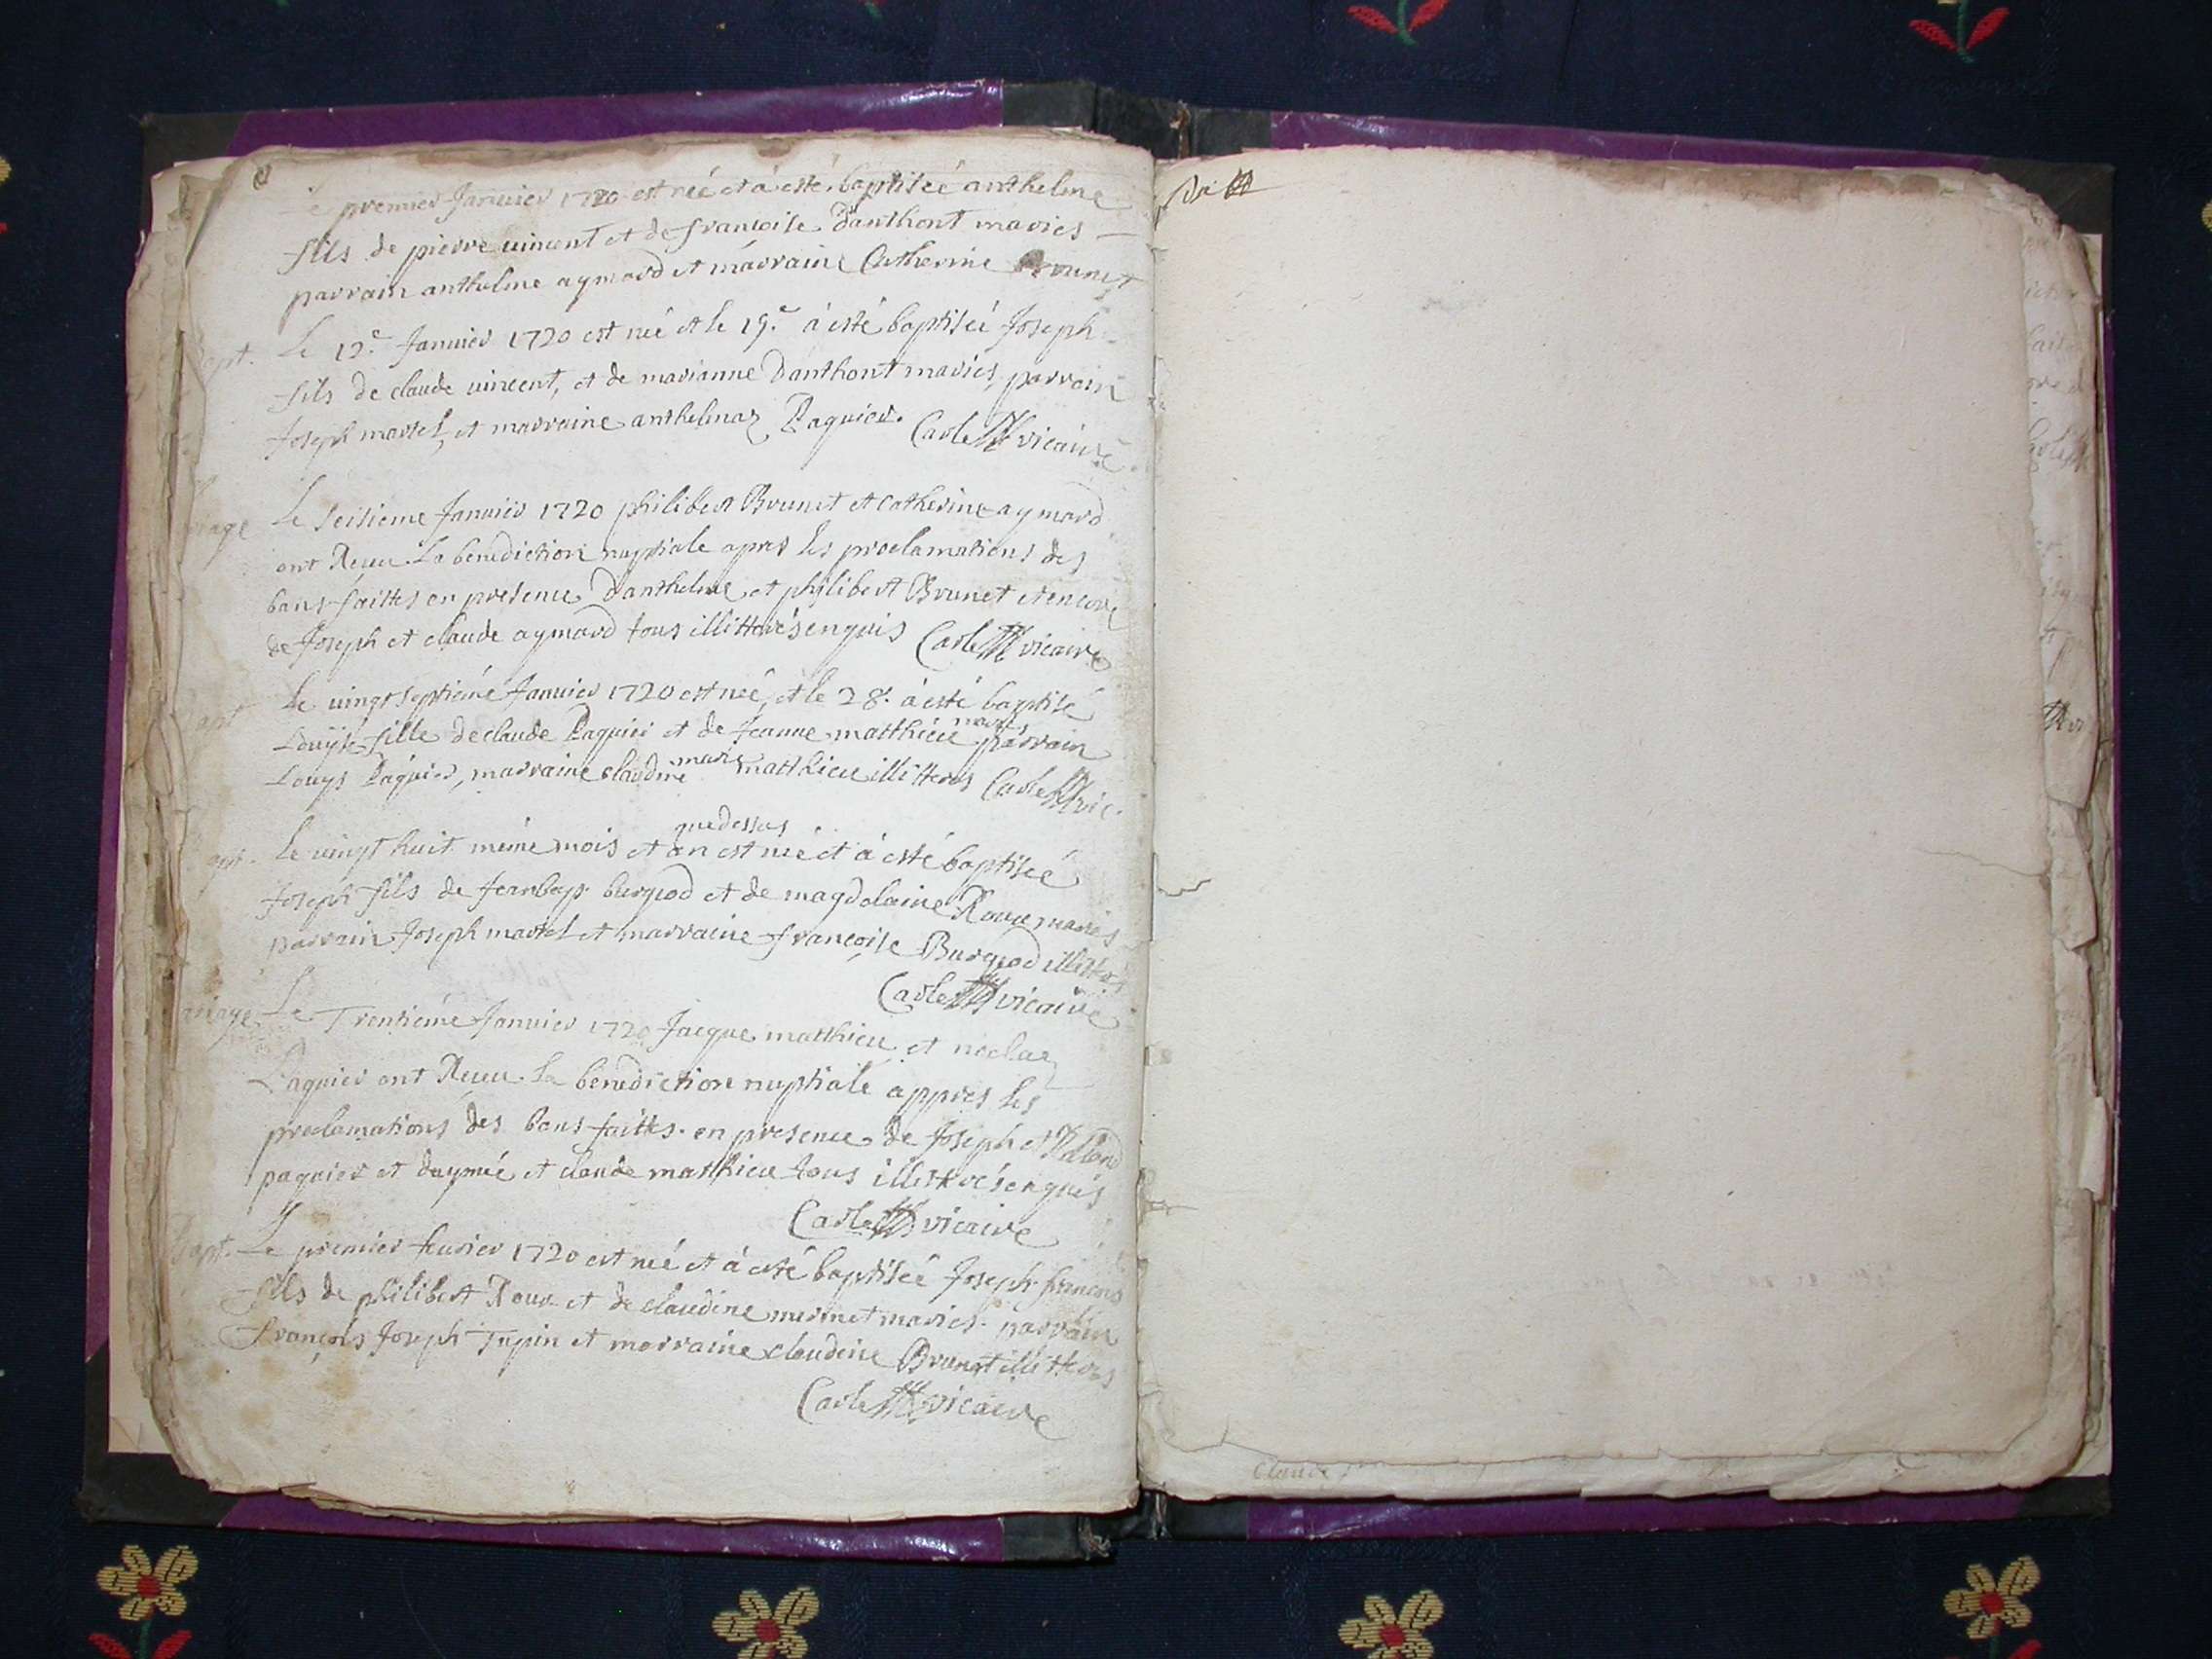 Le premier Januier 1720 est neé et à esté baptiseé anthelme
fils de pierre uincent et de françoise Danthont mariés
parrain anthelme aymard et marraine Catherine Brunet
bapt. Le 12.e Januier 1720 est neé et le 19.e à esté baptiseé Joseph
fils de claude uincent, et de marianne Danthont mariés, parrain
Joseph martel, et marraine anthelmaz Paquier. Carle vicaire
riage Le seisieme Januier 1720 philibert Brunet et catherine aymard
ont Receu La benediction nuptiale apres les proclamations des
bans faittes en presence Danthelme et philibert Brunet et encore
de Joseph et claude aymard tous illitterés enquis Carle vicaire
bapt Le uingt septiéme Januier 1720 est neé, et le 28.e à esté baptisé
mariés
Louyse fille de claude Paquier et de Jeanne matthieu parrain
Louys Paquier, marraine claudine marie matthieu illitteres Carle vic.
que dessus
apt. Le uingt huit méme mois et an est né et à esté baptiseé
Joseph fils de Jean bap. burgod et de magdelaine Roux mariés
parrain Joseph martel et marraine françoise Burgod illitterés
Carle vicaire
ariage Le Trentiéme Januier 1720 Jacque matthieu et noelaz
Paquier ont Receu La benediction nuptiale appres les
proclamations des bans faittes en presence de Joseph et
paquier et daymé et claude matthieu tous illitterés enquis
Carle vicaire
Bapt. Le premier feurier 1720 est neé et à esté baptiseé Joseph françois
fils de philibert Roux et de claudine mermet mariés. parrain
François Joseph Tupin et marraine claudine Brunet illitteres
Carle vicaire
Claude